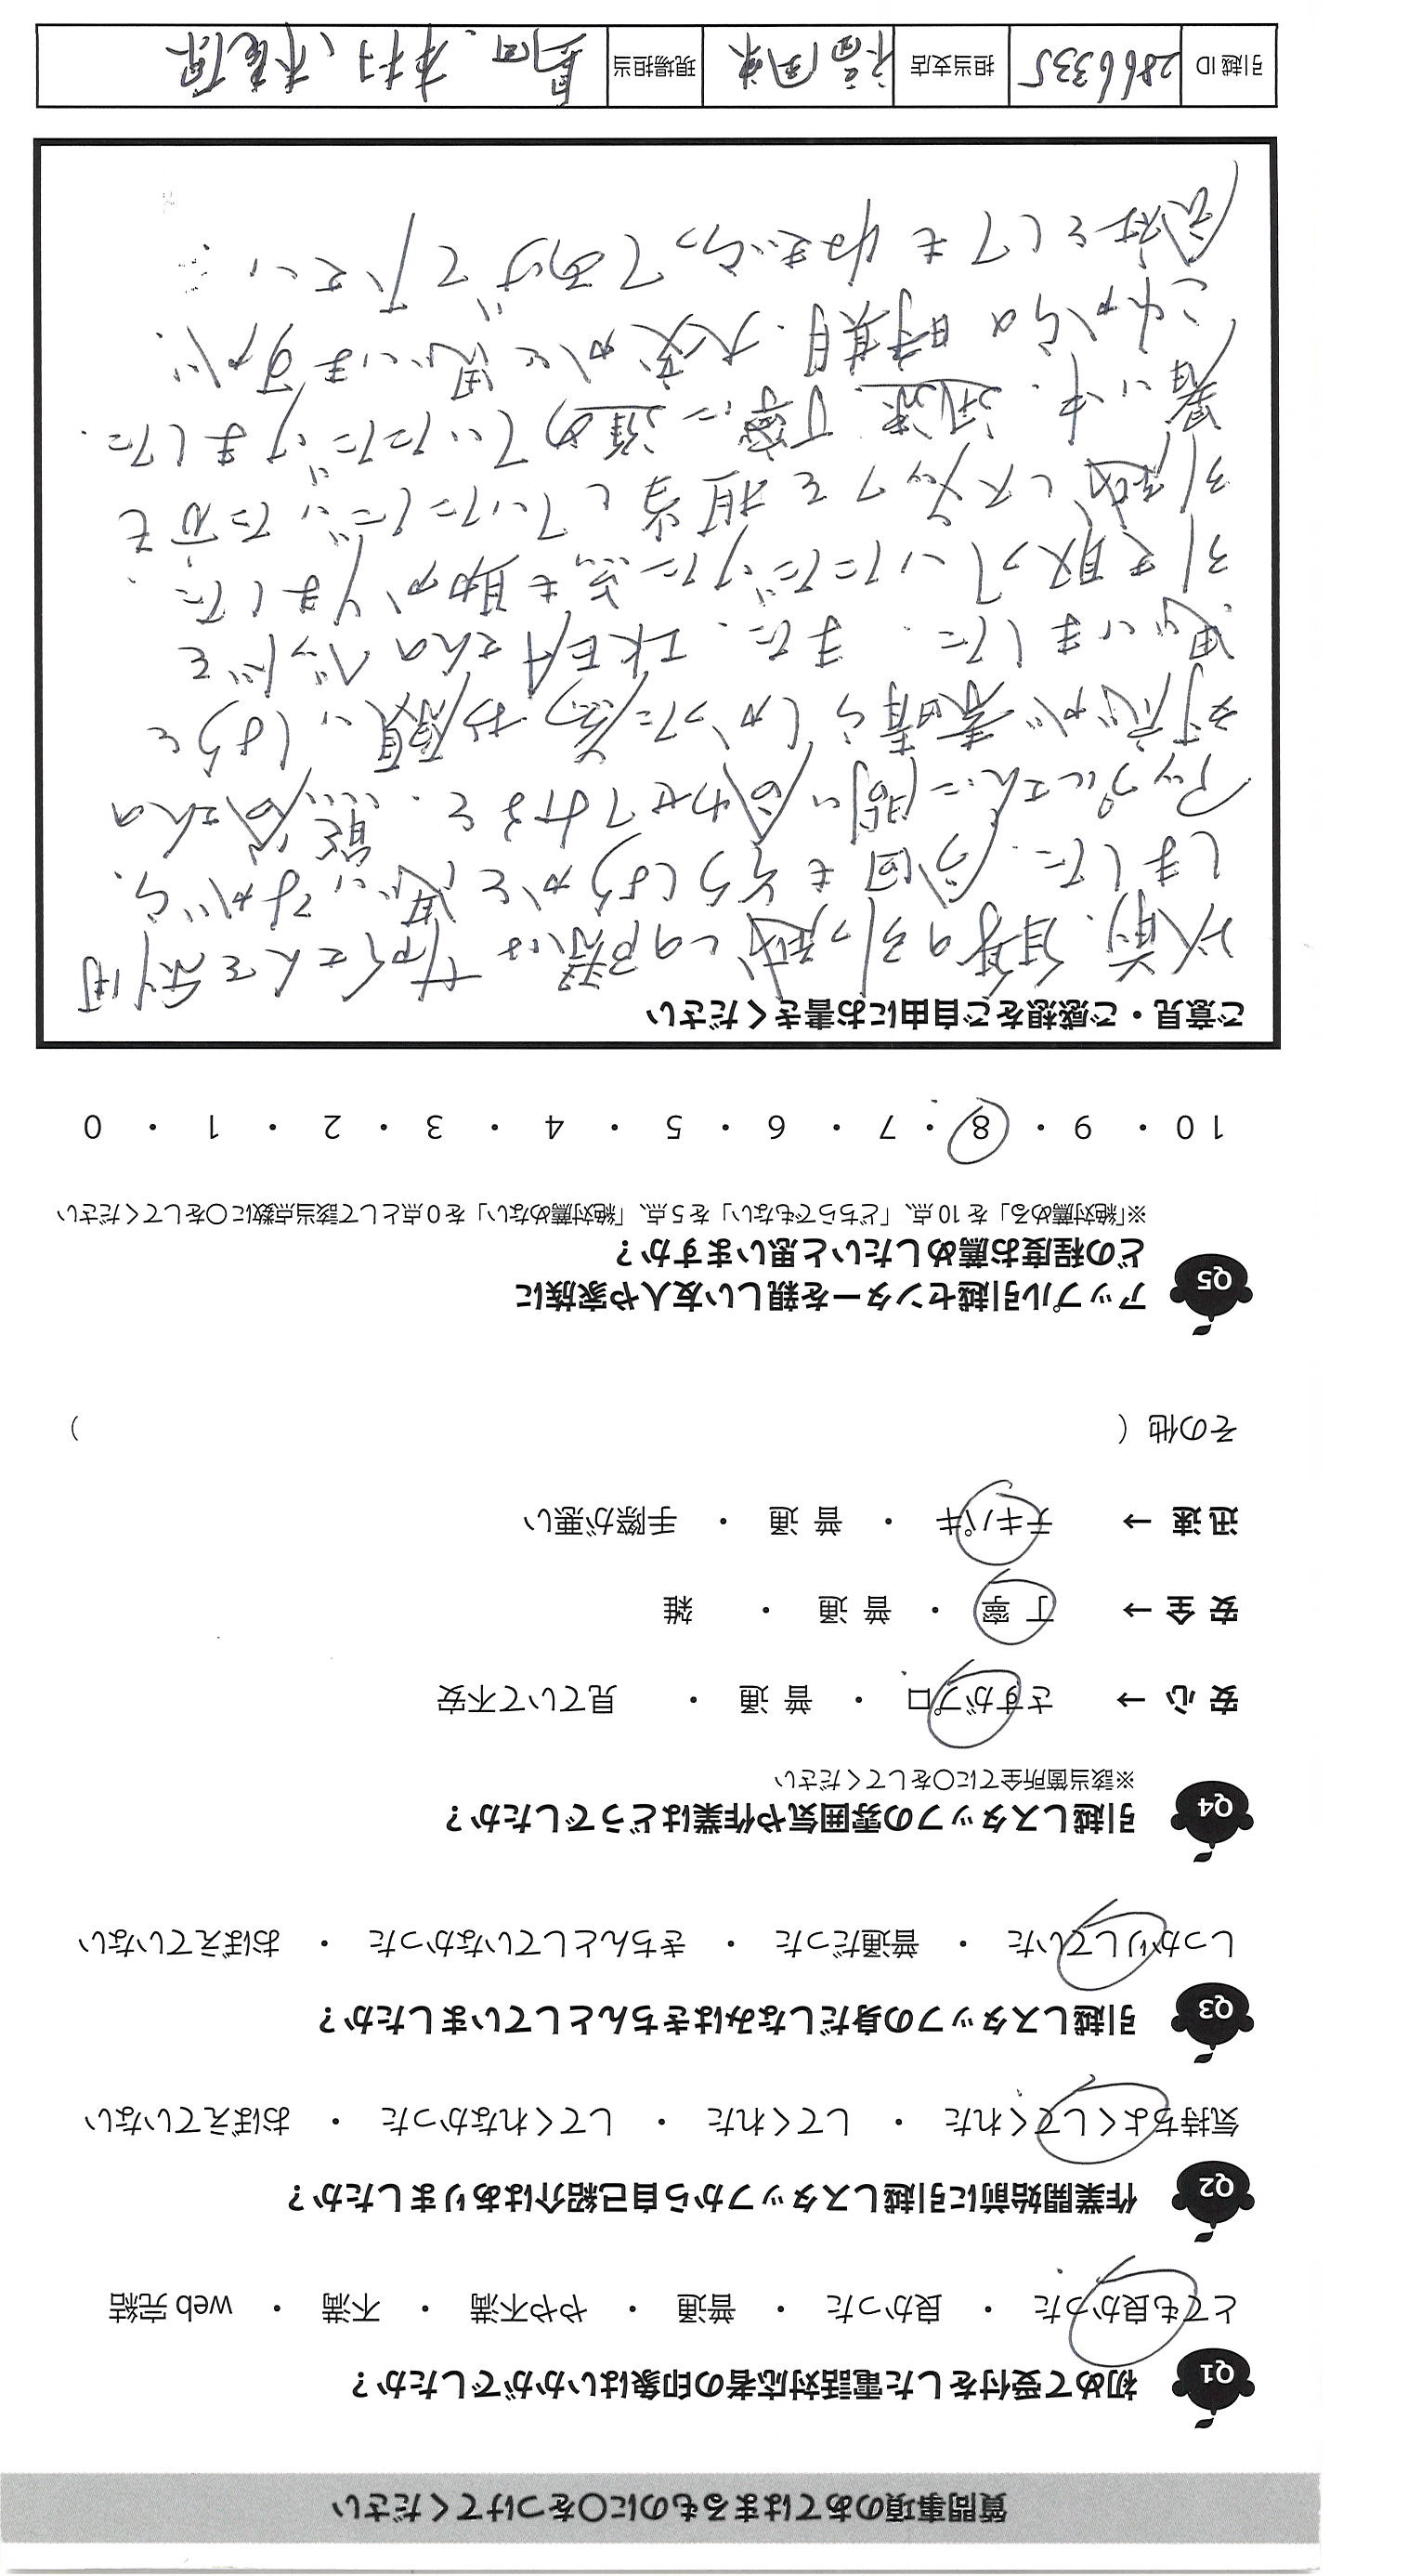 質問事項のあてはまるものに〇をつけてください
Q1 初めて受付をした電話対応者の印象はいかがでしたか？
とても良かった ・ 良かった ・ 普通 ・ やや不満 ・ 不満 ・ web 完結
Q2 作業開始前に引越しスタッフから自己紹介はありましたか？
気持ちよくしてくれた ・ してくれた ・ してくれなかった ・ おぼえていない
Q3 引越しスタッフの身だしなみはきちんとしていましたか？
しっかりしていた ・ 普通だった ・ きちんとしていなかった ・ おぼえていない
Q4 引越しスタッフの雰囲気や作業はどうでしたか？
※該当箇所全てに〇をしてください
安 心 → さすがプロ ・ 普 通 ・ 見ていて不安
安 全 → 丁 寧 ・ 普 通 ・ 雑
迅 速 → テキパキ ・ 普 通 ・ 手際が悪い
その他（ ）
Q5 アップル引越センターを親しい友人や家族に
どの程度お薦めしたいと思いますか？
※「絶対薦める」を 10 点、「どちらでもない」を 5 点、「絶対薦めない」を 0 点として該当点数に〇をしてください
10 ・ 9 ・ 8 ・ 7 ・ 6 ・ 5 ・ 4 ・ 3 ・ 2 ・ 1 ・ 0
ご意見・ご感想をご自由にお書きください
以前、自身の引っ越しの際は サカイさんを利用
しました。今回もそうしようかと思いながら、
アップルさんに問い合わせてみると、熊谷さんの
対応が素晴らしかった為、お願いしようと
思いました。また、IKEAさんのベッドを
引き取っていただけた点も助かりました。
引越しスタッフを担当していただいた方も
暑い中、迅速、丁寧に進めていただけました。
これからの時期、大変かと思いますが、
会社としても ねぎらってあげて下さい。
引越 ID 2866335 担当支店 福岡東 現場担当 島田、木村、